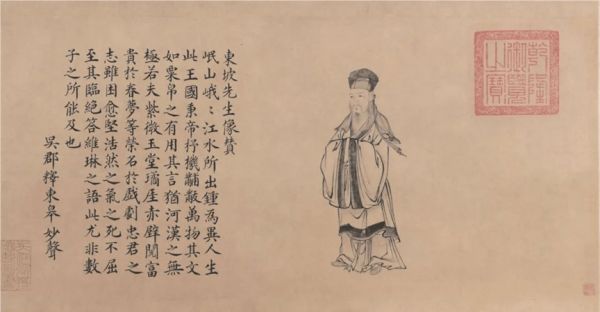 乾隆
御覽
之寶
東坡先生像贊
岷山峩〻江水所出鍾為異人生
此王國秉帝杼機黼黻萬物其文
如粟帛之有用其言猶河漢之無
極若夫紫微玉堂瓊崖赤壁閱富
貴於春夢等榮名於戲劇忠君之
志雖困愈堅浩然之氣之死不屈
至其臨絕答維琳之語此尤非數
子之所能及也
吳郡釋東皋妙聲